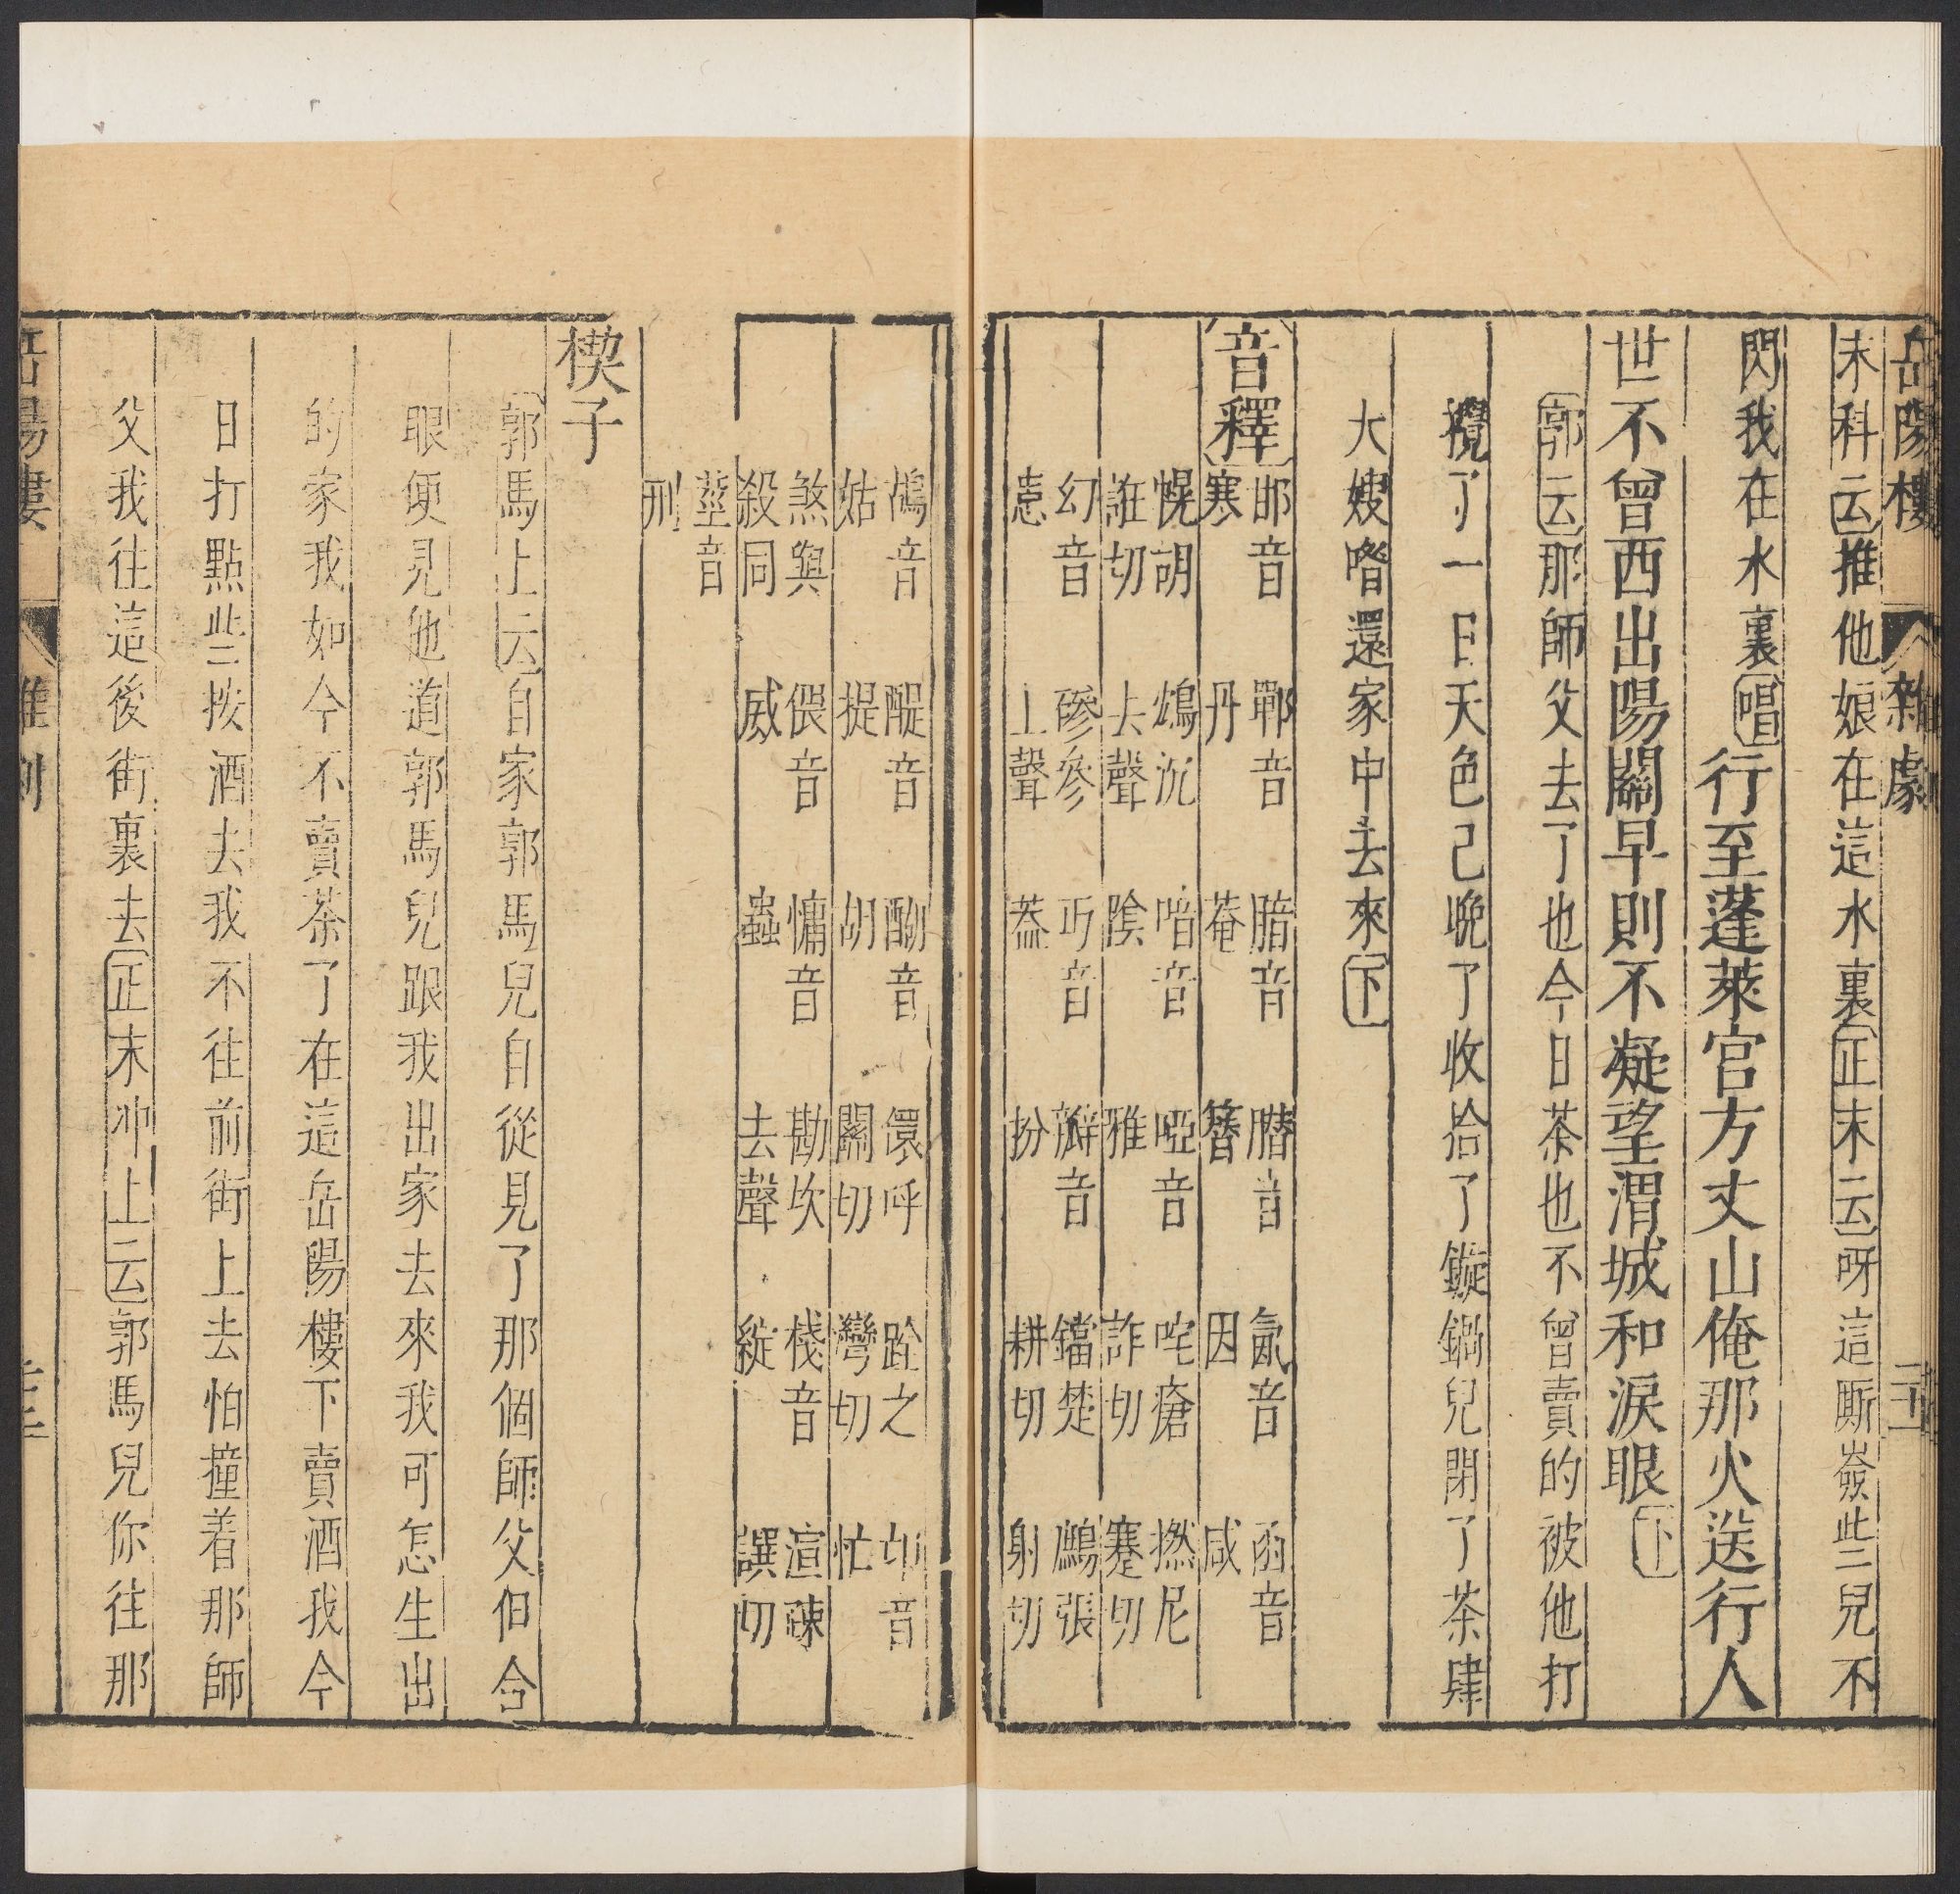 岳陽樓 雜劇
末科云推他娘在這水裏正末云呀這厮嶮些兒不
閃我在水裏唱行至蓬萊宮方丈山俺那火送行人
世不曾西出陽關早則不凝望渭城和淚眼下
郭云那師父去了也今日茶也不曾賣的被他打
攪了一日天色已晚了收拾了鏇鍋兒閉了茶肆
大嫂喒還家中去來下
音釋
邯音寒 鄲音丹 腤音菴 臢音簪 氤音因 函音咸
幌胡誑切 鴆沉去聲 喑音陰 啞音雅 咤瘡詐切 撚尼蹇切
幻音患 磣參上聲 丐音葢 瓣音扮 鐺楚耕切 鷓張射切
鴣音姑 醍音提 醐音胡 儇呼關切 跧之灣切 邙音忙
煞與殺同 偎音威 慵音蟲 勘坎去聲 棧音綻 渲疎譔切
莖音刑
楔子
郭馬上云自家郭馬兒自從見了那個師父但合
眼便見他道郭馬兒跟我出家去來我可怎生出
的家我如今不賣茶了在這岳陽樓下賣酒我今
日打點些按酒去我不往前街上去怕撞着那師
父我往這後街裏去正末冲上云郭馬兒你往那
岳陽樓 雜劇